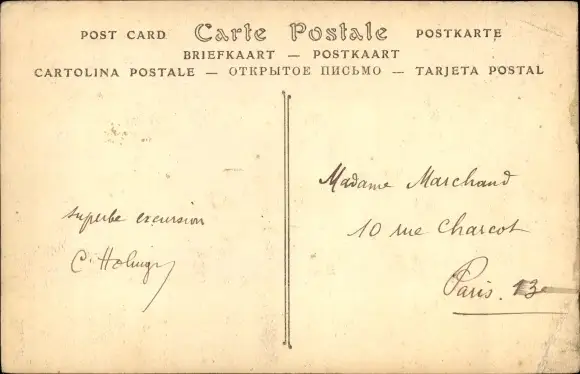 POST CARD Carte Postale POSTKARTE
BRIEFKAART — POSTKAART
CARTOLINA POSTALE — ОТКРЫТОЕ ПИСЬМО — TARJETA POSTAL
superbe excursion
C.
Madame Marchand
10 rue Charcot
Paris. 13